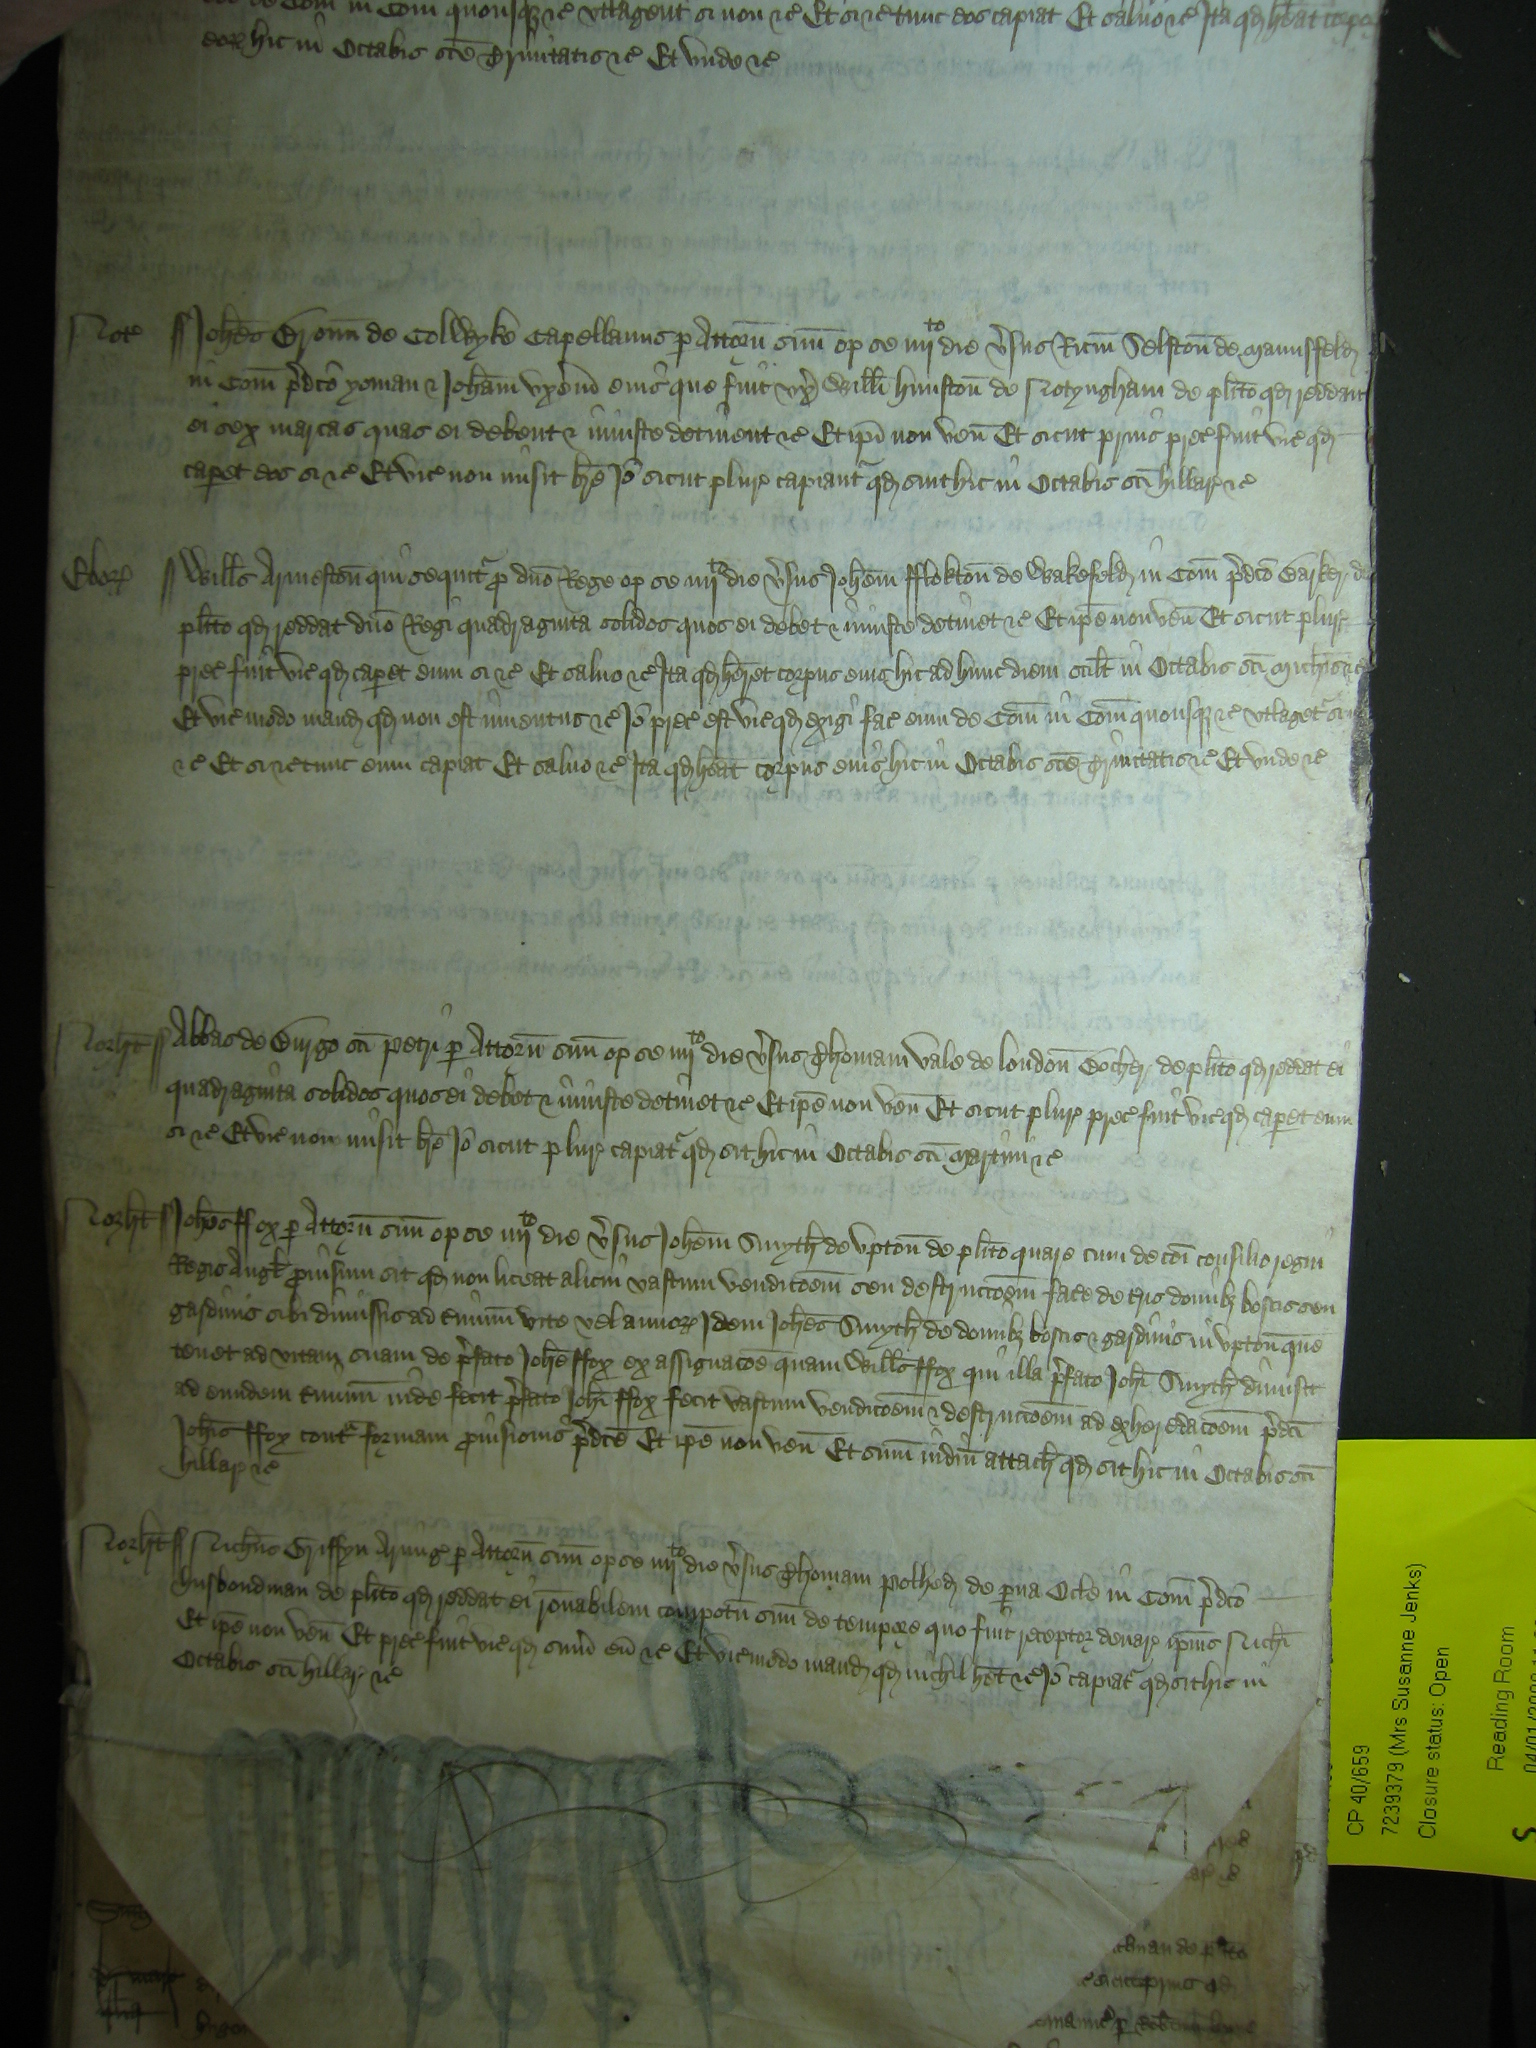 de Com in Com quousq3 &c vtlagent si non &c Et si &c tunc eos capiat Et saluo &c Ita qd heat corpora
eoꝝ hic in Octabis sce Trinitatis &c Et vnde &c
Not ss Johes Broun de Colwyke Capellanus p Attorn suu op se iiijto die vsus Ricm Selston de Maunsfeld
in Com pdco yoman & Joham vxem eius que fuit vx Willi Hunston de Notyngham de plito qd reddant
ei sex marcas quas ei debent & iniuste detinent &c Et ipi non ven Et sicut prius prec fuit vic qd
caperet eos si &c Et vic non misit bre Jo sicut plur capiant qd sint hic in Octabis sci Hillar &c
Ebor ss Wills Armeston qui sequit p dno Rege op se iiijto die vsus Johem fflokton de Wakefeld in Com pdco Barker de
plito qd reddat dno Regi quadraginta solidos quos ei debet & iniuste detinet &c Et ipe non ven Et sicut plur
prec fuit vic qd caperet eum si &c Et saluo &c Ita qd heret corpus eius hic ad hunc diem scilt in Octabis sci Michis &c
Et vic modo mand qd non est inuentus &c Jo prec est vic qd exigi fac eum de Com in Com quousq3 &c vtlaget si
&c Et si &c tunc eum capiat Et saluo &c Ita qd heat corpus eius hic in Octabis sce Trinitatis &c Et vnde &c
Norht ss Abbas de Burgo sci Petri p Attorn suu op se iiijto die vsus Thomam Vale de london Bocher de plito qd reddat ei
quadraginta solidos quos ei debet & iniuste detinet &c Et ipe non ven Et sicut plur prec fuit vic qd caperet eum
si &c Et vic non misit bre Jo sicut plur capiat qd sit hic in Octabis sci Martini &c
Norht ss Johes ffox p Attorn suu op se iiijto die vsus Johem Smyth de Vpton de plito quare cum de coi consilio regni
Regis Angl prouisum sit qd non liceat alicui vastum vendicoem seu destruccoem facere de tris domib3 boscis seu
gardinis sibi dimissis ad tminum vite vel annoꝝ Idem Johes Smyth de domib3 boscis & gardinis in Vpton que
tenet ad vitam suam de pfato Johe ffox ex assignacoe quam Wills ffox qui illa pfato Johi Smyth dimisit
ad eundem tminum inde fecit pfato Johi ffox fecit vastum vendicoem & destruccoem ad exheredacoem pdci
Johis ffox contra formam prouisionis pdce Et ipe non ven Et sum indin attach qd sit hic in Octabis sci
Hillar &c
Norht ss Nichus Griffyn Armig p Attorn suu op se iiijto die vsus Thomam Pothed de pua Ocle in Com pdco
husbondman de plito qd reddat ei ronabilem compotu suu de tempore quo fuit receptor denar ipius Nichi
Et ipe non ven Et prec fuit vic qd sum eu &c Et vic modo mand qd nichil het &c Jo capiat qd sit hic in
Octabis sci Hillar &c
CP 40/659
7239379 (Mrs Susanne Jenks)
Closure status: Open
Reading Room